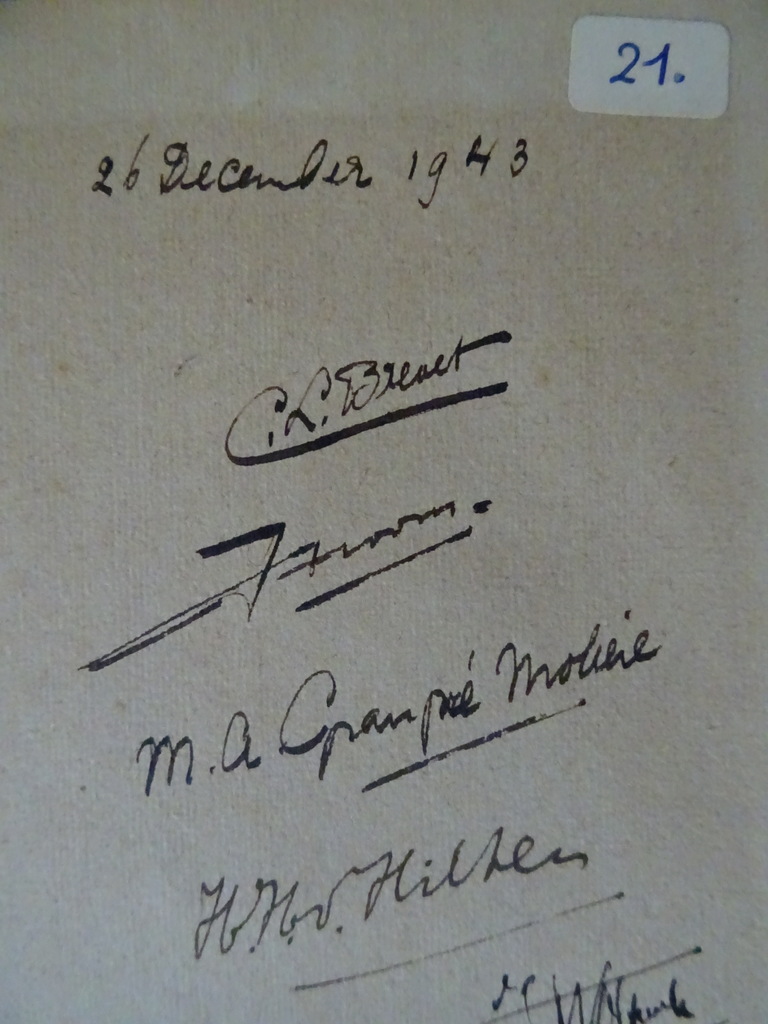 21.
26 December 1943
C. L. Brevet
M. A Granpré Moliere
H. H. v. Hilten